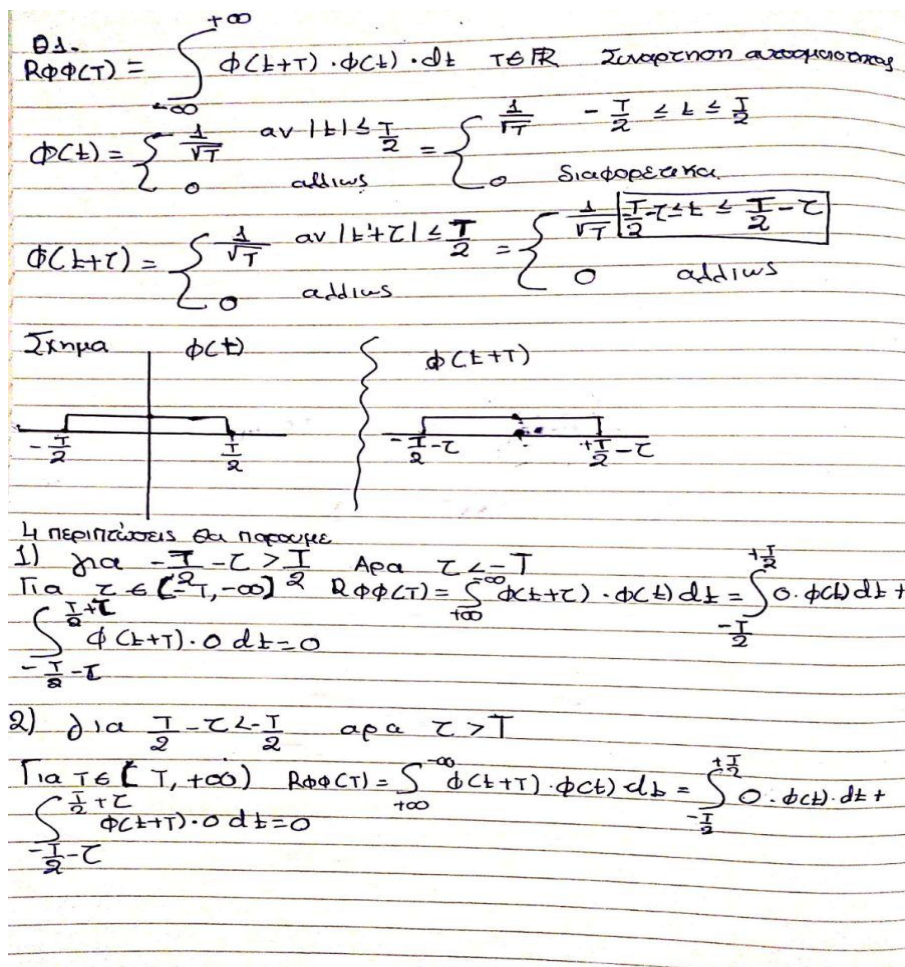 Θ1.
Rφφ(τ) = ∫_{-∞}^{+∞} φ(t+τ) · φ(t) · dt τ∈ℝ Συναρτηση αυτομοιοτητας
φ(t) = { 1/√T αν |t| ≤ T/2 = { 1/√T - T/2 ≤ t ≤ T/2
0 αλλιως 0 διαφορετικα
φ(t+τ) = { 1/√T αν |t+τ| ≤ T/2 = { 1/√T -T/2-τ ≤ t ≤ T/2 - τ
0 αλλιως 0 αλλιως
Σχημα φ(t) φ(t+τ)
-T/2 T/2 -T/2-τ +T/2-τ
4 περιπτώσεις θα παρουμε
1) για -T/2 - τ > T/2 Αρα τ < -T
Για τ ∈ [-T, -∞) Rφφ(τ) = ∫_{+∞}^{-∞} φ(t+τ) · φ(t) dt = ∫_{-T/2}^{+T/2} 0 · φ(t) dt +
∫_{-T/2-τ}^{T/2+τ} φ(t+τ) · 0 dt = 0
2) για T/2 - τ < -T/2 αρα τ > T
Για τ ∈ [T, +∞) Rφφ(τ) = ∫_{+∞}^{-∞} φ(t+τ) · φ(t) dt = ∫_{-T/2}^{+T/2} 0 · φ(t) · dt +
∫_{-T/2-τ}^{T/2+τ} φ(t+τ) · 0 dt = 0